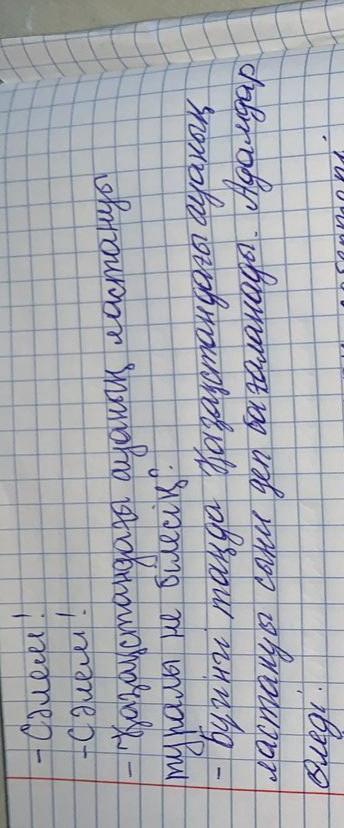 - Сәлем!
- Сәлем!
- Қазақстандағы ауаның ластануы
туралы не білесің?
- Бүгінгі таңда Қазақстандағы ауаның
ластануы сыни деп бағаланады. Адамдар
өледі.